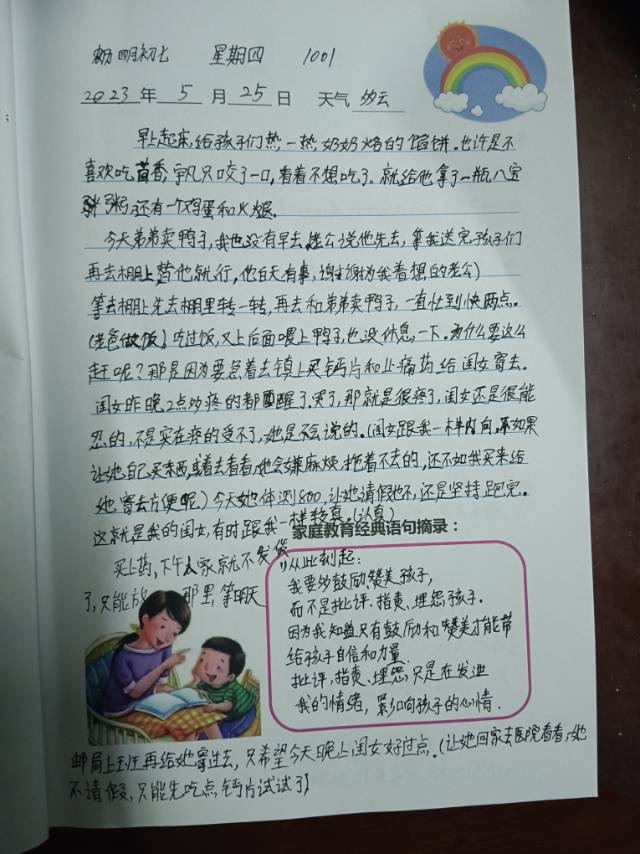 阴历四月初七 星期四 1001
2023年5月25日 天气 多云
早上起床,给孩子们热一热奶奶烙的馅饼.也许是不
喜欢吃茴香,宇凡只咬了一口,看着不想吃了.就给他拿了一瓶八宝
粥,还有一个鸡蛋和火腿.
今天弟弟卖鸭子,我也没有早去,老公说他先去,等我送完孩子们
再去棚上替他就行,他白天有事,谢谢为我着想的老公)
等去棚上先去棚里转一转,再去和弟弟卖鸭子,一直忙到快两点.
(老爸做饭)吃过饭,又上后面喂上鸭子,也没休息一下.为什么要这么
赶呢?那是因为要急着去镇上买钙片和止痛药给闺女寄去.
闺女昨晚2点多疼的都醒了.哭了,那就是很疼了,闺女还是很能
忍的,不是实在疼的受不了,她是不会说的.(闺女跟我一样内向,不如果
让她自己买东西,或着去看看,她会嫌麻烦,拖着不去的,还不如我买来给
她寄去方便呢)今天她体测800,让她请假她不,还是坚持跑完.
这就是我的闺女,有时跟我一样较真.(认真)
买上药,下午人家就不发货
了,只能放那里,等明天
家庭教育经典语句摘录:
"从此刻起:
我要多鼓励赞美孩子,
而不是批评、指责、埋怨孩子.
因为我知道只有鼓励和赞美才能带
给孩子自信和力量.
批评,指责、埋怨只是在发泄
我的情绪,影响孩子的心情.
邮局上班再给她寄过去,只希望今天晚上闺女好过点.(让她回家去医院看看,她
不请假,只能先吃点钙片试试了)